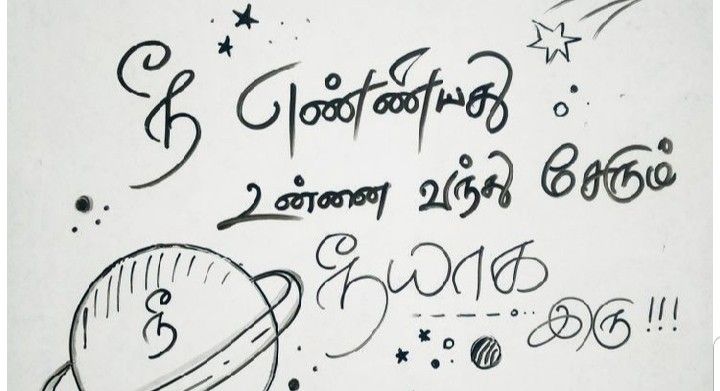 நீ எண்ணியது
உன்னை வந்து சேரும்
நீயாக
இரு!!!
நீ